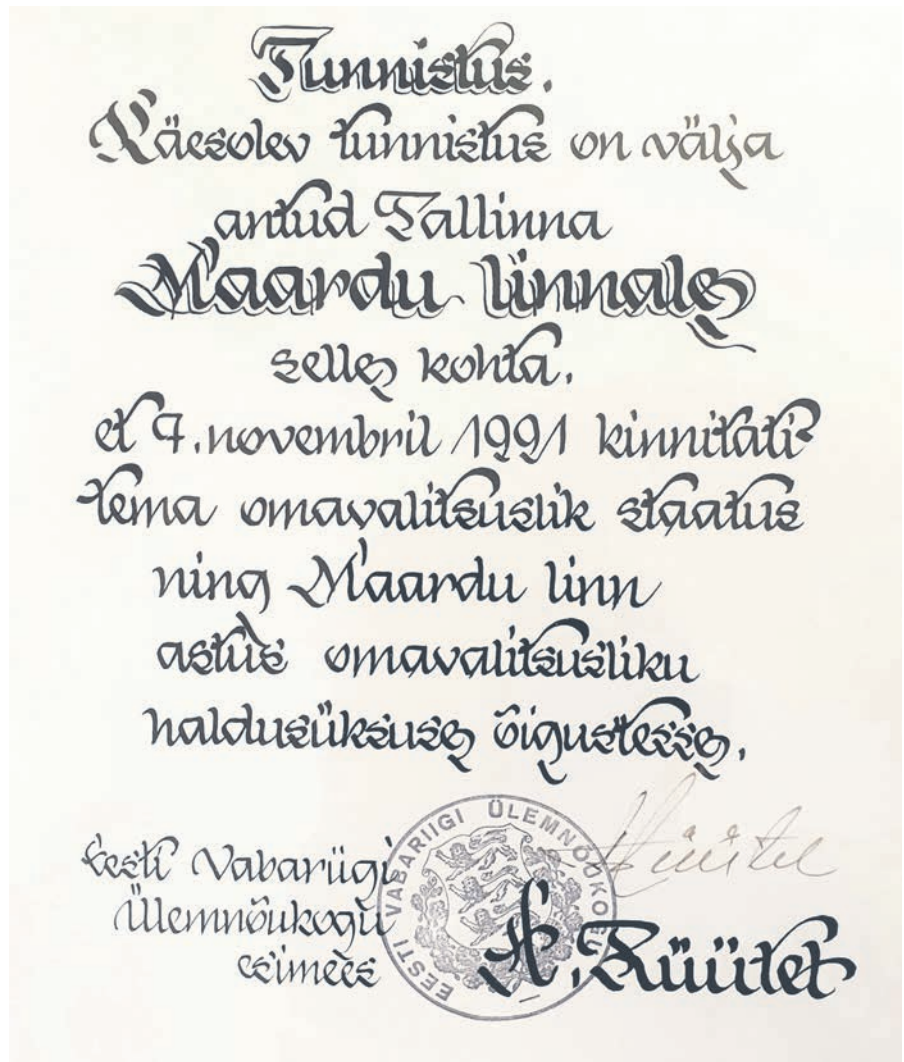 Tunnistus.
Käesolev tunnistus on välja
antud Tallinna
Maardu linnale
selle kohta,
et 7. novembril 1991 kinnitati
tema omavalitsuslik staatus
ning Maardu linn
astus omavalitsusliku
haldusüksuse õigustesse.
Eesti Vabariigi
Ülemnõukogu
esimees
EESTI VABARIIGI ÜLEMNÕUKOGU
Rüütel
A. Rüütel